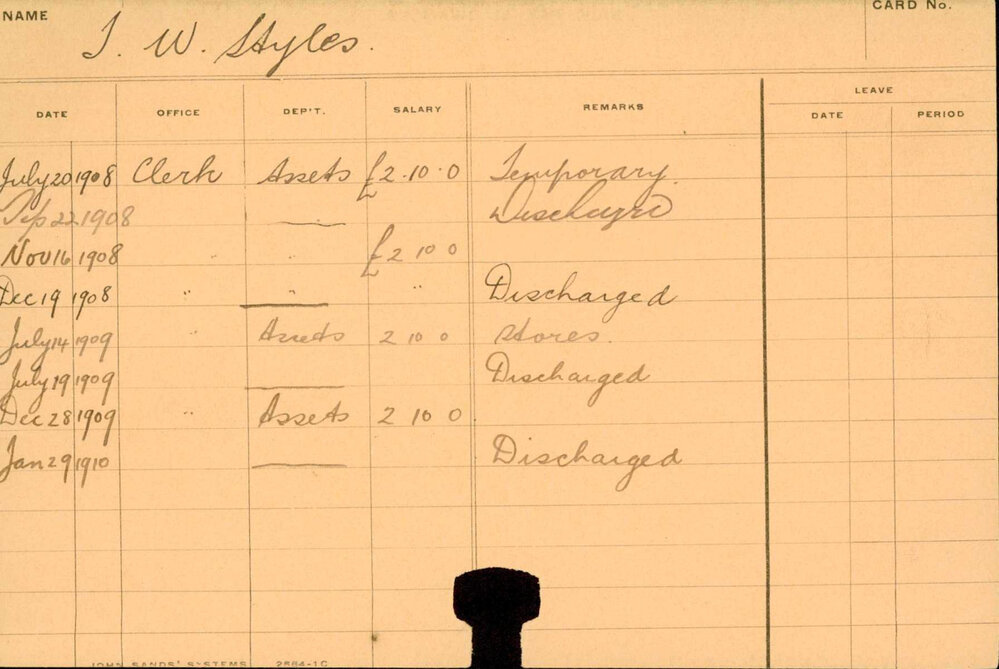 NAME
CARD No.
J. W. Styles.
DATE OFFICE DEP'T. SALARY REMARKS LEAVE
DATE PERIOD
July 20 1908 Clerk Assets £2.10.0 Temporary.
Sep 22 1908 — Discharged
Nov 16 1908 " " £2 10 0
Dec 19 1908 " " " Discharged
July 14 1909 " Assets 2 10 0 Stores.
July 19 1909 — Discharged
Dec 28 1909 " Assets 2 10 0
Jan 29 1910 — Discharged
JOHN SANDS' SYSTEMS 2584-1C